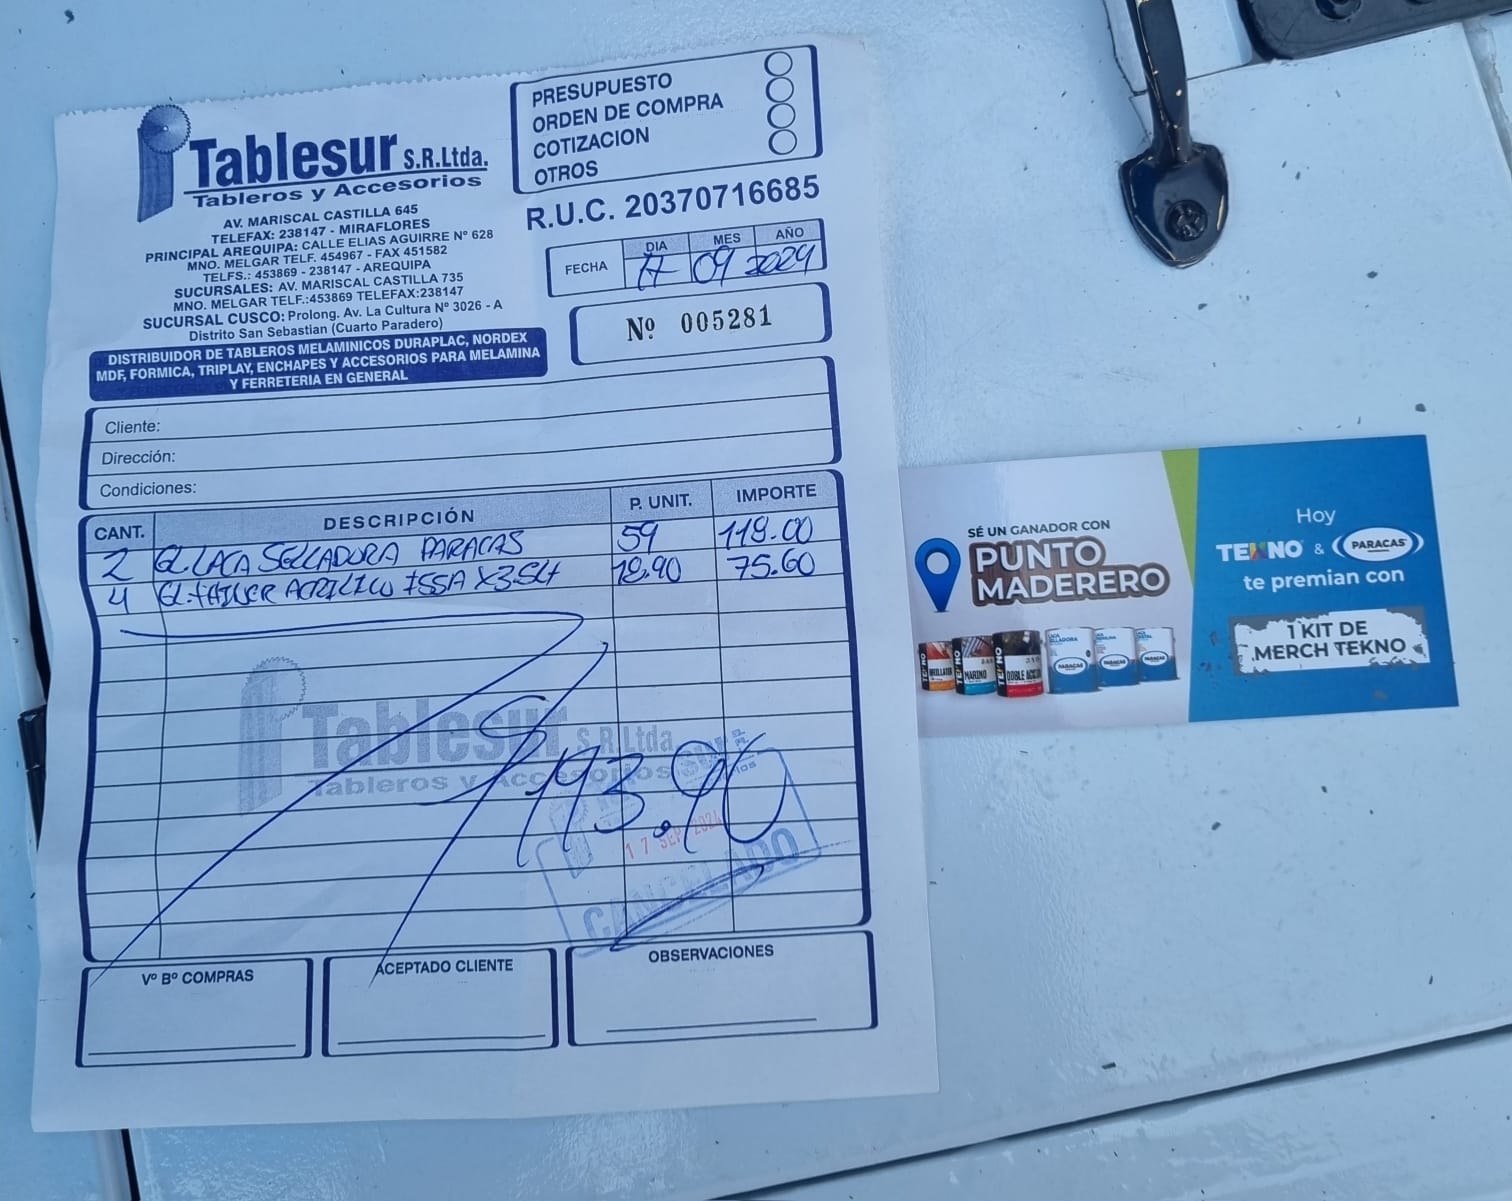 Tablesur S.R.Ltda.
Tableros y Accesorios
AV. MARISCAL CASTILLA 645
TELEFAX: 238147 - MIRAFLORES
PRINCIPAL AREQUIPA: CALLE ELIAS AGUIRRE Nº 628
MNO. MELGAR TELF. 454967 - FAX 451582
TELFS.: 453869 - 238147 - AREQUIPA
SUCURSALES: AV. MARISCAL CASTILLA 735
MNO. MELGAR TELF.:453869 TELEFAX:238147
SUCURSAL CUSCO: Prolong. Av. La Cultura Nº 3026 - A
Distrito San Sebastian (Cuarto Paradero)
DISTRIBUIDOR DE TABLEROS MELAMINICOS DURAPLAC, NORDEX
MDF, FORMICA, TRIPLAY, ENCHAPES Y ACCESORIOS PARA MELAMINA
Y FERRETERIA EN GENERAL
PRESUPUESTO
ORDEN DE COMPRA
COTIZACION
OTROS
R.U.C. 20370716685
FECHA DIA MES AÑO
17 09 2024
Nº 005281
Cliente:
Dirección:
Condiciones:
CANT. DESCRIPCIÓN P. UNIT. IMPORTE
2 GL LACA SELLADORA PARACAS 59 118.00
4 GL. THINER ACRILICO 18.90 75.60
Tablesur S.R.Ltda
Tableros y Accesorios
17 SEP 2024
CANCELADO
Vº Bº COMPRAS
ACEPTADO CLIENTE
OBSERVACIONES
SÉ UN GANADOR CON
PUNTO
MADERERO
Hoy
TEKNO & PARACAS
te premian con
1 KIT DE
MERCH TEKNO
TEKNO
MARINO
TEKNO
PARACAS
PARACAS
PARACAS